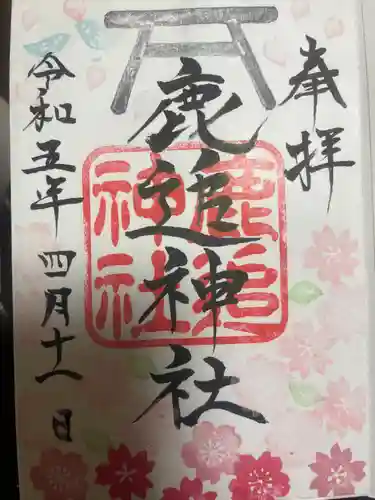 奉拝
鹿追神社
鹿追神社
令和五年四月十一日